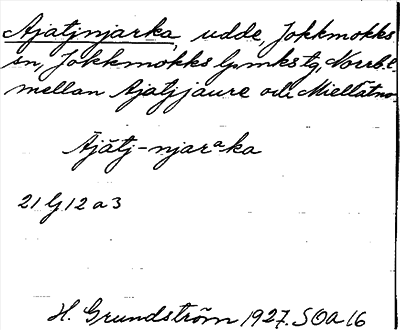 Ajatjnjarka, udde, Jokkmokks
sn, Jokkmokks lpmks tg, Norrb. l.
mellan Ajatjjaure och Miellätno.
Äjātj-njarᵃka
21 G 12 a 3
H. Grundström 1927. SOA 16